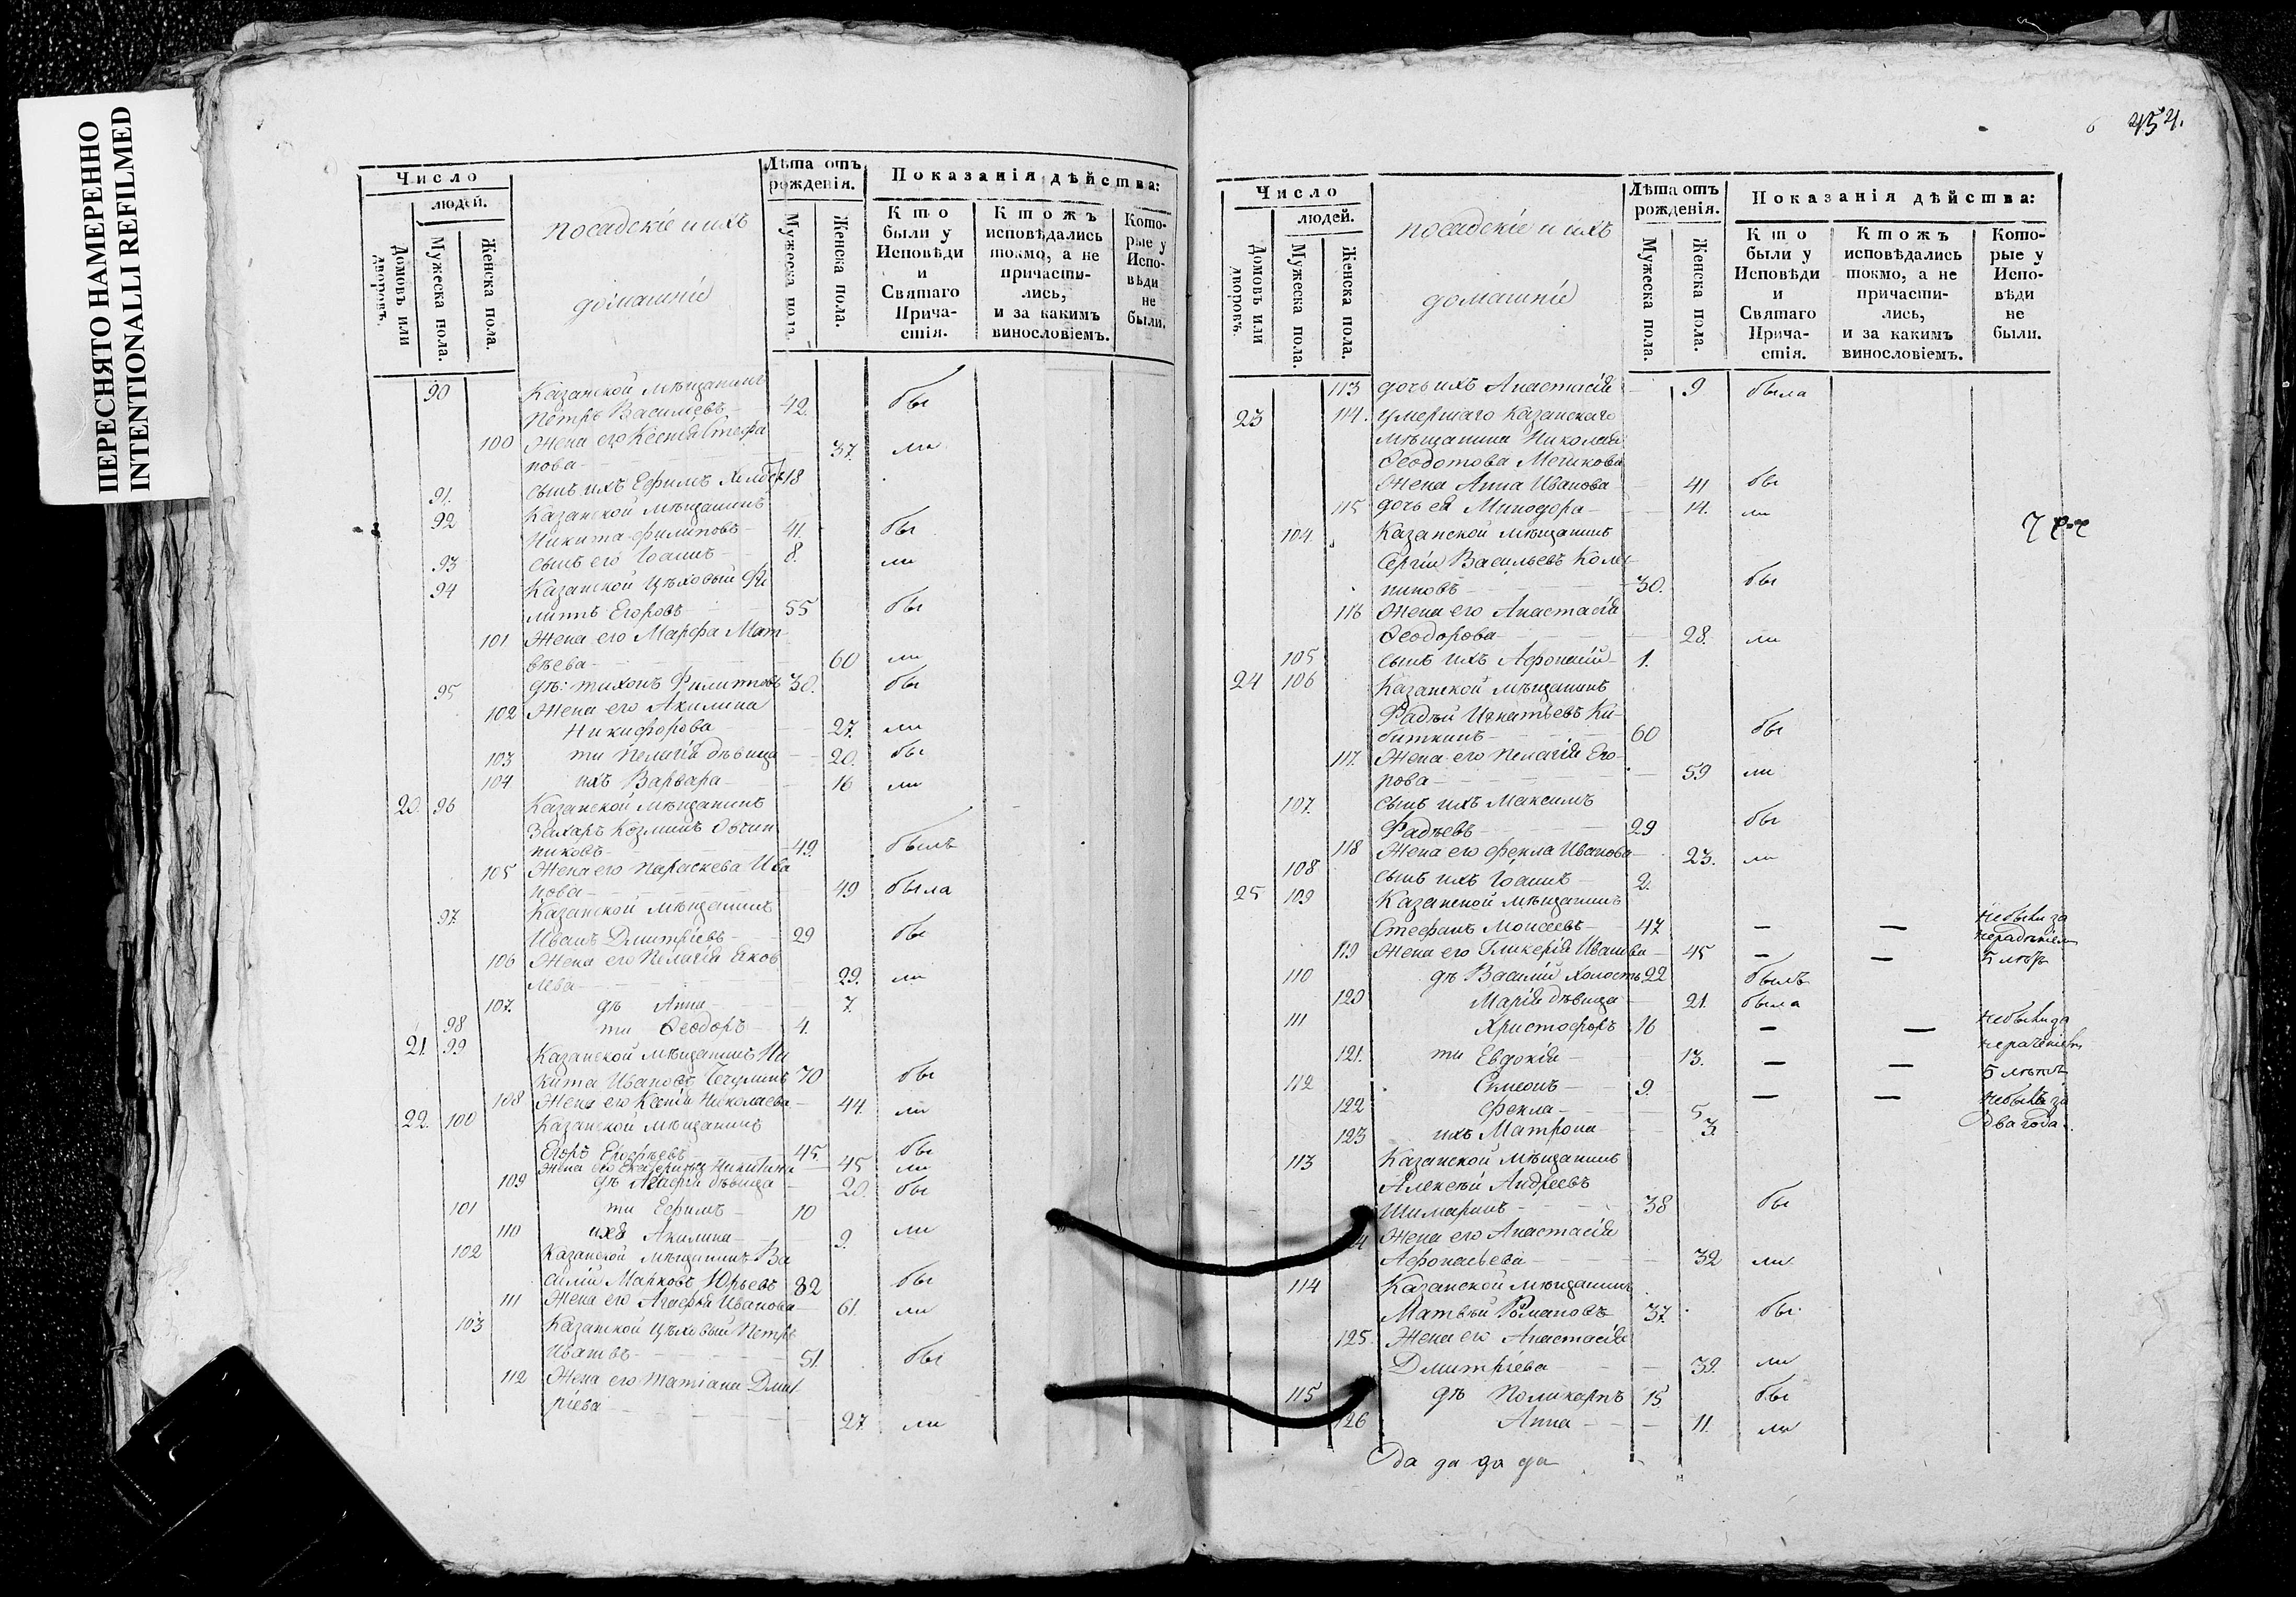 ПЕРЕСНЯТО НАМЕРЕННО
INTENTIONALLI REFILMED
Число
людей.
Домовъ или дворовъ.
Мужеска пола.
Женска пола.
посадскіе и ихъ
домашніе
Лѣта отъ рожденія.
Мужеска пола.
Женска пола.
Показанія дѣйства:
Кто были у Исповѣди и Святаго Причастія.
Ктожъ исповѣдались токмо, а не причастились, и за какимъ винословіемъ.
Которые у Исповѣди не были.
90 Казанской мѣщанинъ
Петръ Васильевъ 42. бы
100 Жена его Ксенія Стефа
нова 37. ли
91. сынъ ихъ Ефимъ Холостъ 18
92 Казанской мѣщанинъ
Никита Филиповъ 41. бы
93 сынъ его Іоаннъ 8. ли
94 Казанской цѣховый Фи
липпъ Егоровъ 55 бы
101 Жена его Марфа Мат
вѣева 60 ли
95 дѣ: Тихонъ Филипповъ 30. бы
102 Жена его Акилина
Никифорова 27. ли
103 ти Пелагія дѣвица 20. бы
104 ихъ Варвара 16 ли
20. 96 Казанской мѣщанинъ
Захаръ Козминъ Овчин
никовъ 49. былъ
105 Жена его Параскева Ива
нова 49 была
97. Казанской мѣщанинъ
Иванъ Дмитріевъ 29 бы
106 Жена его Пелагія Яков
лева 29. ли
107. дѣ Анна 7.
98 ти Ѳеодоръ 4.
21. 99 Казанской мѣщанинъ Ни
кита Ивановъ Чечулинъ 70 бы
108 Жена его Ксенія Николаева 44. ли
22. 100 Казанской мѣщанинъ
Егоръ Ерофѣевъ 45 бы
Жена его Екатерина Никитина 45 ли
109 дѣ Агафія дѣвица 20. бы
101 ти Ефимъ 10
110 ихъ Акилина 9. ли
102 Казанской мѣщанинъ Ва
силій Марковъ Юрьевъ 82 бы
111 Жена его Агафія Иванова 61. ли
103 Казанской цѣховый Петръ
Ивановъ 51. бы
112 Жена его Татіана Дмит
ріева 27. ли
6 454.
Число
людей.
Домовъ или дворовъ.
Мужеска пола.
Женска пола.
посадскіе и ихъ
домашніе
Лѣта отъ рожденія.
Мужеска пола.
Женска пола.
Показанія дѣйства:
Кто были у Исповѣди и Святаго Причастія.
Ктожъ исповѣдались токмо, а не причастились, и за какимъ винословіемъ.
Которые у Исповѣди не были.
113 дочь ихъ Анастасія 9 была
23 114. умершаго Казанскаго
мѣщанина Николая
Ѳеодотова Мешкова
Жена Анна Иванова 41 бы
115 дочь ея Минодора 14. ли
104. Казанской мѣщанинъ
Сергій Васильевъ Колы
пиновъ 30. бы
116 Жена его Анастасія
Ѳеодорова 28. ли
105 сынъ ихъ Афонасій 1.
24 106 Казанской мѣщанинъ
Фадѣй Игнатьевъ Ки-
биткинъ 60 бы
117. Жена его Пелагія Его-
рова 59 ли
107. сынъ ихъ Максимъ
Фадѣевъ 29 бы
118 Жена его Фекла Иванова 23. ли
108 сынъ ихъ Іоаннъ 2.
25 109 Казанской мѣщанинъ
Стефанъ Моисеевъ 47 — — небыли за
119 Жена его Гликерія Иванова 45 — — нерадѣніемъ
5 лѣтъ
110 дѣ Василій холостъ 22 былъ
120 Марія дѣвица 21. была
111 Христофоръ 16 — — небыли за
121. ти Евдокія 13. — — нераченіемъ
112 Симеонъ 9. — — 5 лѣтъ
122 Фекла 5 небыли за
123 ихъ Матрона 3. два года.
113 Казанской мѣщанинъ
Алексѣй Андреевъ
Шимаринъ 38 бы
Жена его Анастасія
Афонасьева 32 ли
114 Казанской мѣщанинъ
Матвѣй Романовъ 37. бы
125. Жена его Анастасія
Дмитріева 39. ли
115 дѣ Поликарпъ 15 бы
126 Анна 11. ли
Да да да да